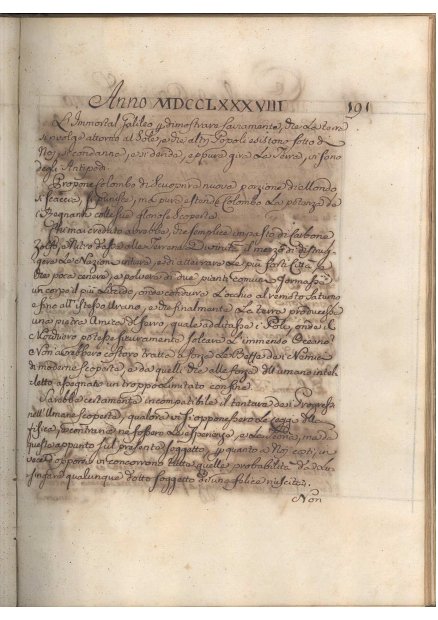 Anno MDCCLXXXVIII 191
L'Immortal Galileo dimostrare sacramente, che La terra
si volge attorno al Sole, e che altri Popoli esiston sotto di
Noi, si condanna, e si denda, eppure gira La Terra, vi sono
degli Antipodi.
Propone Colombo di scuoprire nuova porzione di Mondo
si scaccia, ma pure stende Colombo La potenza de
i Regnanti colle sue gloriose scoperte.
Chi mai creduto avrebbe, che semplice impasto di Carbone
Zolfo, e Nitro
gere Le Nazioni intiere, ed atterrare Le più forti Città
che poca cenere, e polvere di due piante comuni formasse
un corpo il più Lucido, onde condurre L'occhio al remoto Saturno
e fino all'istesso Urano, e che finalmente La terra producesse
una pietra Amica del ferro, quale additasse i Poli, onde il
Nocchiero potesse sicuramente solcare L'immenso Oceano?
Non avrebbero costoro tratte a forza Le Beffe dei Nemici
di moderne scoperte, e da quelli che alle forze dell'umano intel-
letto assegnate un troppo limitato confine.
Sarebbe certamente incompatibile il tentare dei Progressi
nell'Umane scoperte, qualora vi si opponessero Le Leggi
fisica, e contrarie ne fossero Le esperienze, e La ragione, ma
questo appunto sul presente soggetto, quanto a Noi costì, in
vece d'opporsi vi concorrono tutte quelle probabilità da Lu-
singare qualunque dotto soggetto di una felice riuscita.
Non